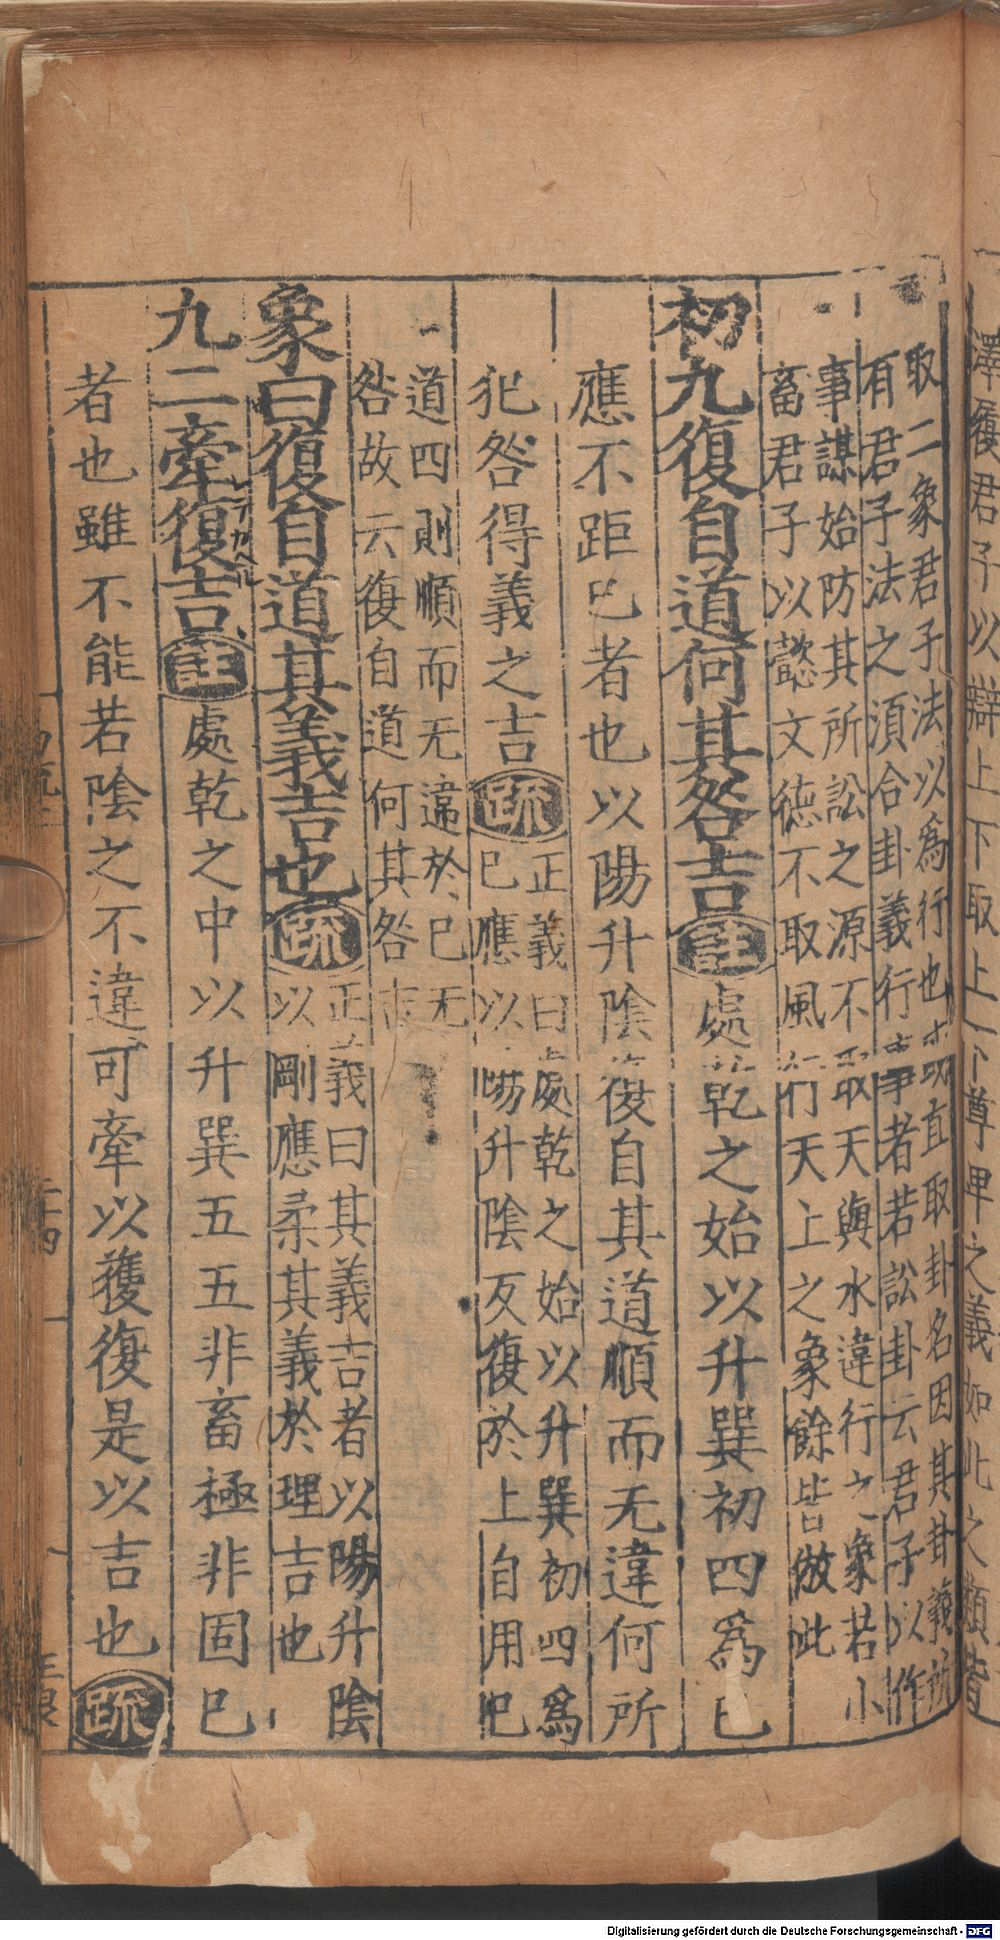 澤履君子以辯上下取上下尊卑之義如此之類皆
取二象君子法以爲行也直取卦名因其卦義所
有君子法之須合卦義行事者若訟卦云君子以作
事謀始防其所訟之源不取天與水違行之象若小
畜君子以懿文德不取風行天上之象餘皆倣此
初九復自道何其咎吉註處乾之始以升巽初四爲巳
應不距巳者也以陽升陰復自其道順而无違何所
犯咎得義之吉疏正義曰處乾之始以升巽初四爲
巳應以陽升陰反復於上自用巳
道四則順而无違於巳无
咎故云復自道何其咎吉
象曰復自道其義吉也疏正義曰其義吉者以陽升陰
以剛應柔其義於理吉也
九二牽復吉註處乾之中以升巽五五非畜極非固巳
者也雖不能若陰之不違可牽以獲復是以吉也疏
Digitalisierung gefördert durch die Deutsche Forschungsgemeinschaft - DFG